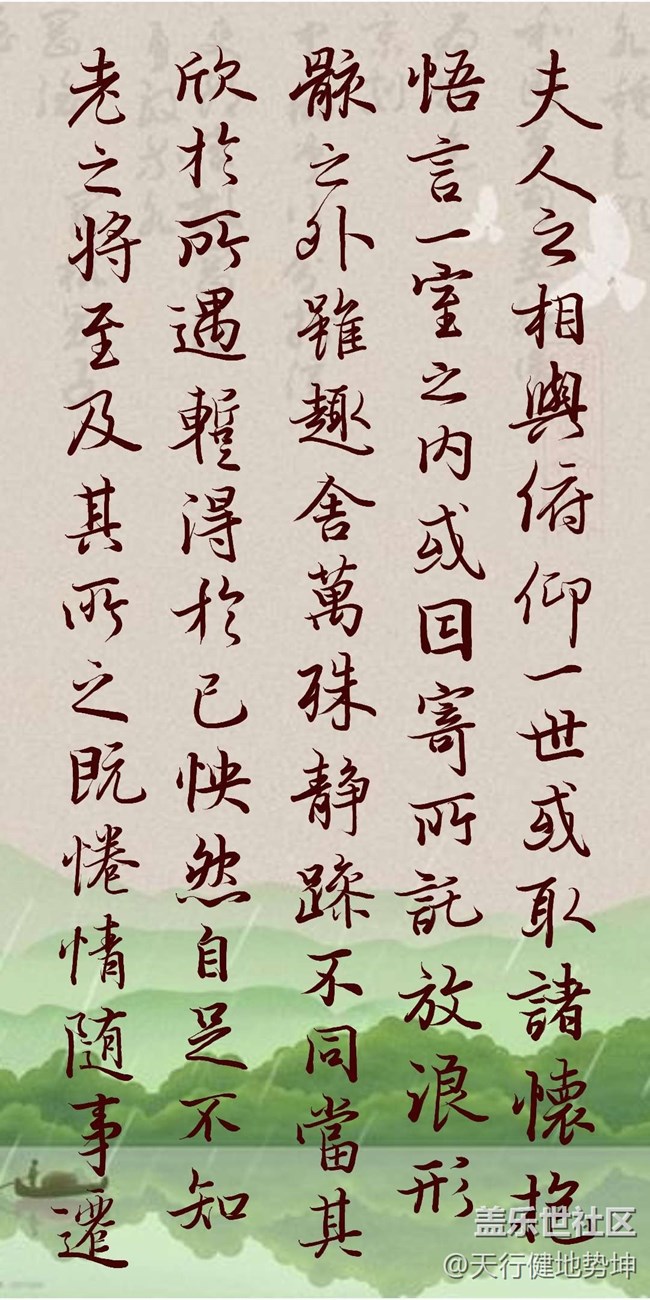 夫人之相與俯仰一世或取諸懷抱
悟言一室之内或因寄所託放浪形
骸之外雖趣舍萬殊静躁不同當其
欣於所遇蹔得於己怏然自足不知
老之將至及其所之既惓情随事遷
盖乐世社区
@天行健地势坤